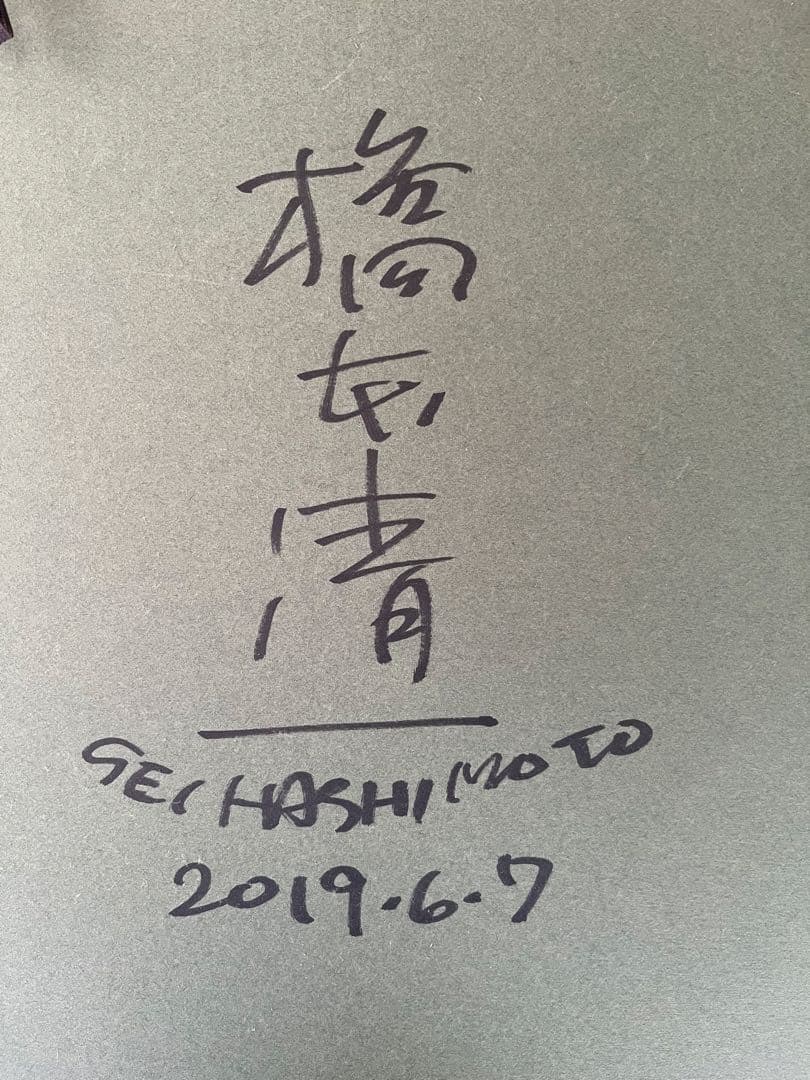 橋本清
SEI HASHIMOTO
2019.6.7